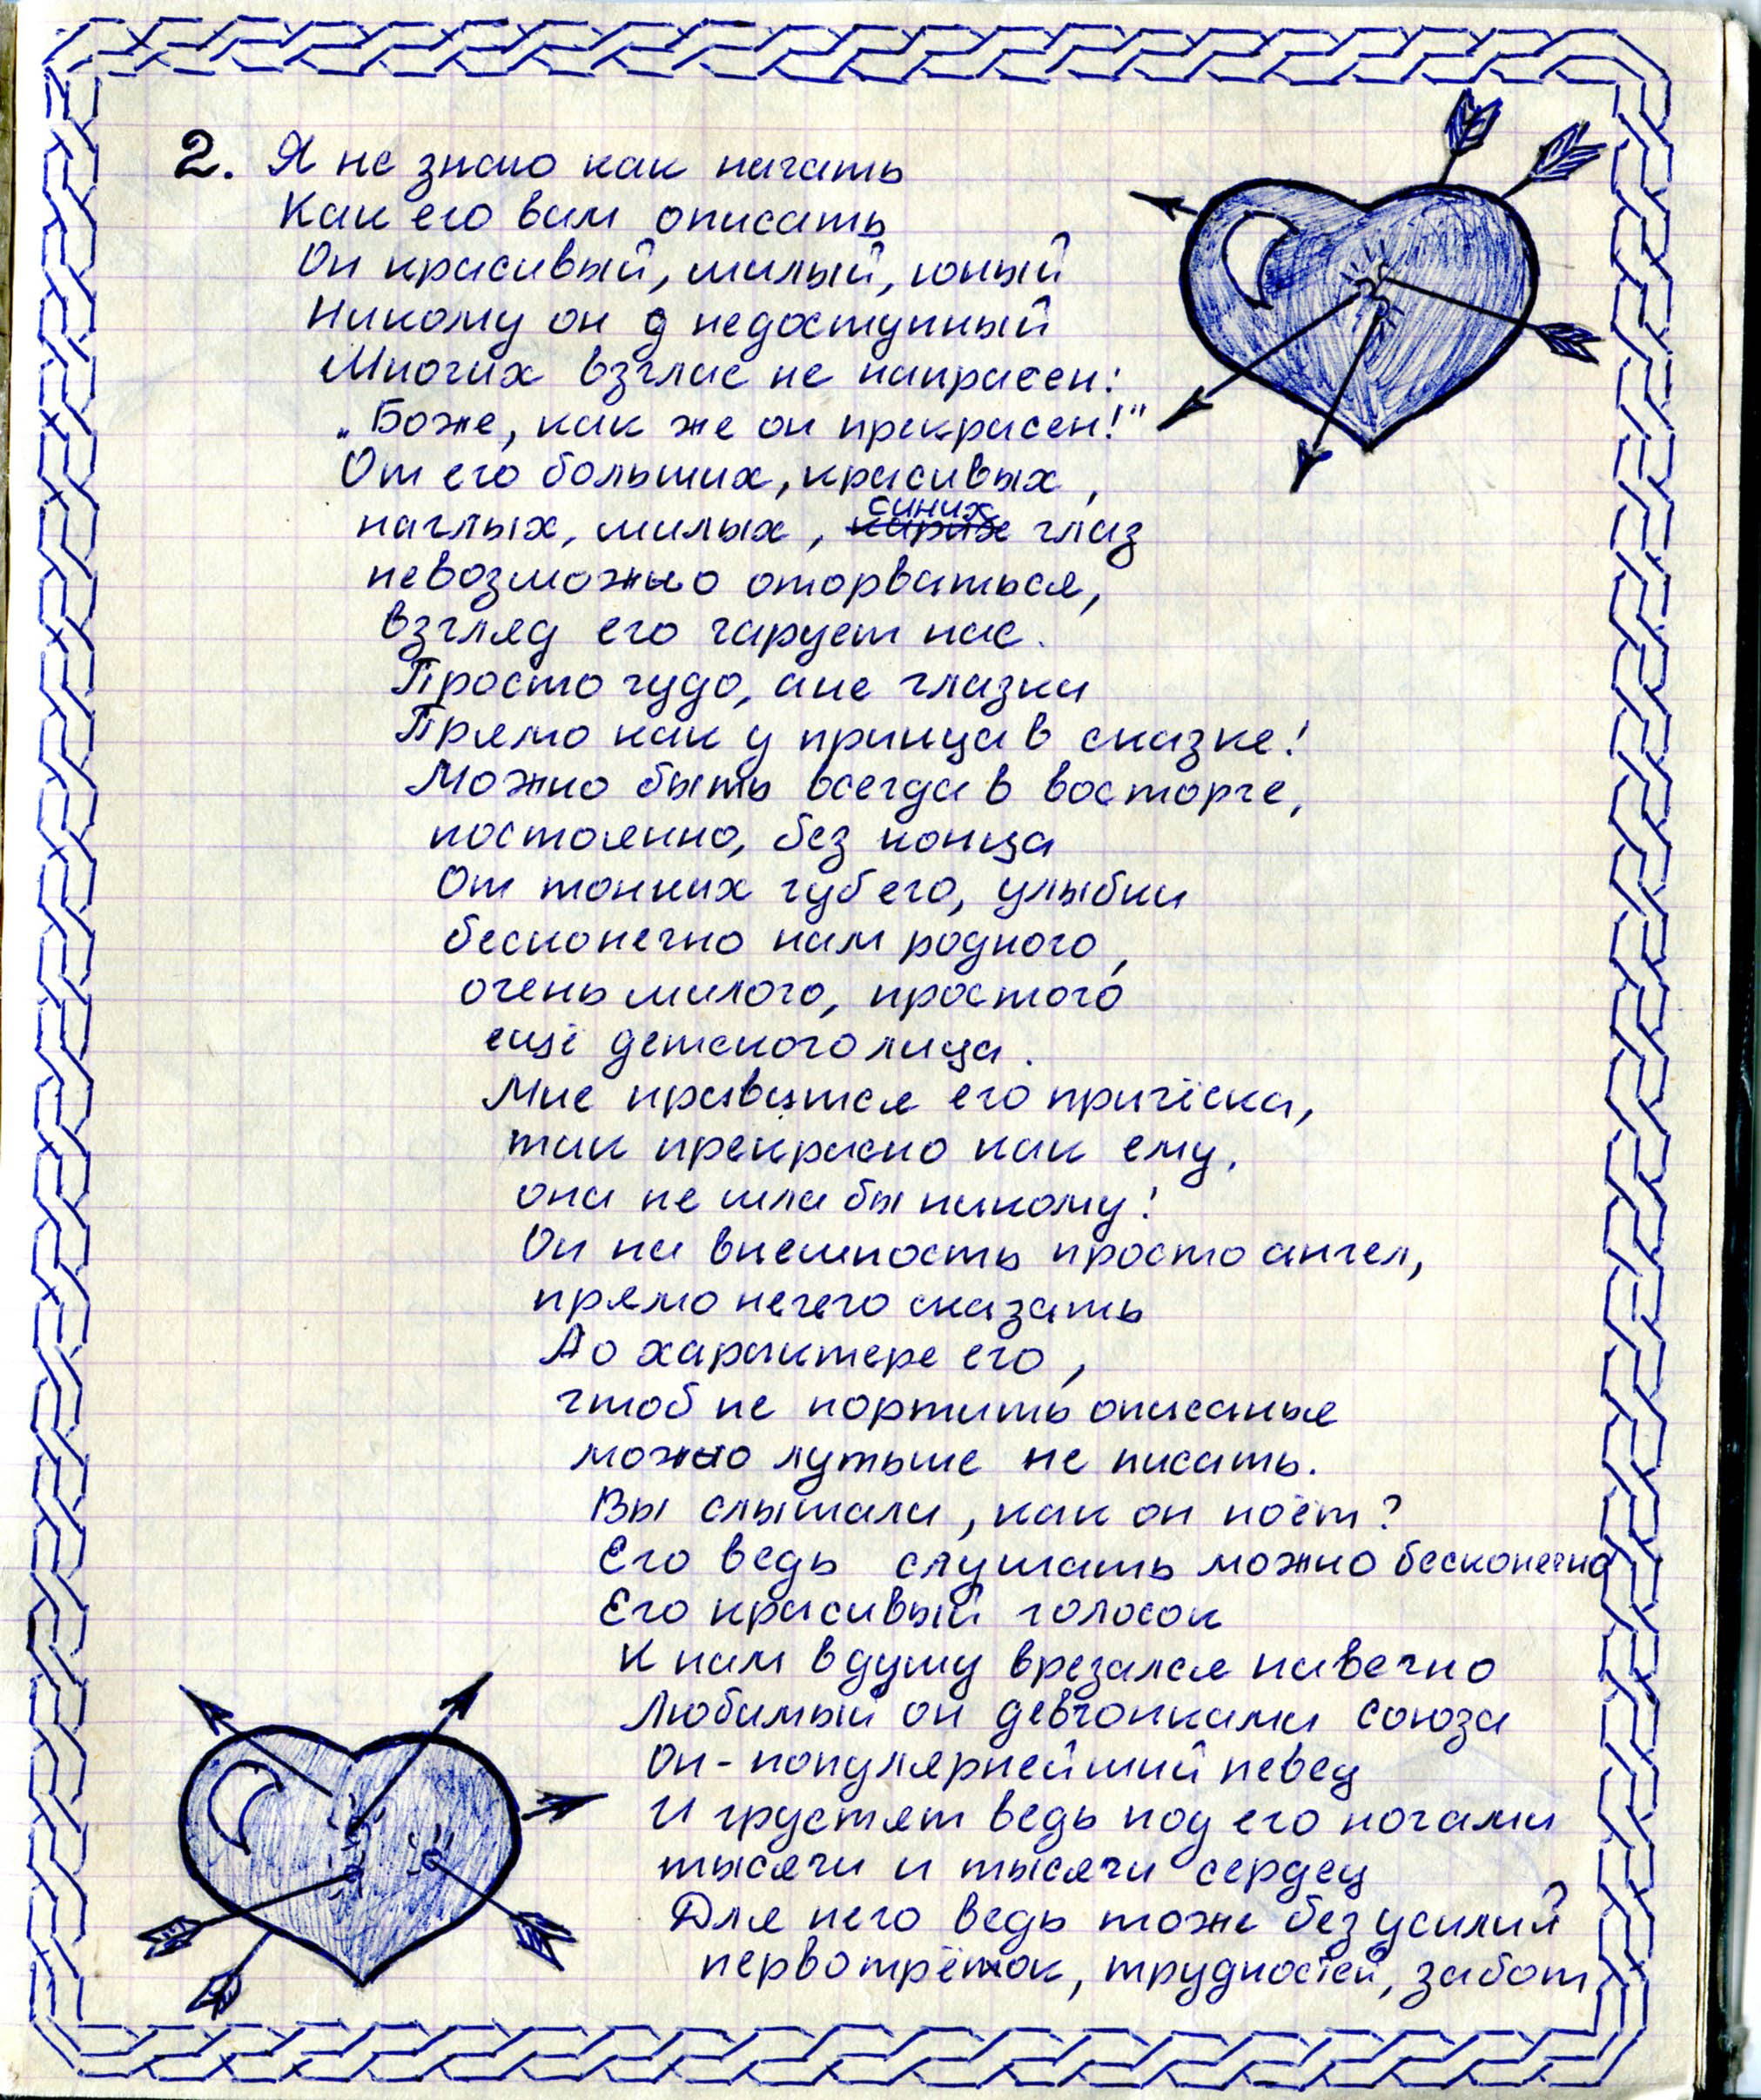 2. Я не знаю как начать
Как его вам описать
Он красивый, милый, юный
Никому он д недоступный
Многих взглас не напрасен:
„Боже, как же он прекрасен!"
От его больших, красивых,
наглых, милых, синих глаз
невозможно оторваться,
взгляд его чарует нас.
Просто чудо, а не глазки
Прямо как у принца в сказке!
Можно быть всегда в восторге,
постоянно, без конца
От тонких губ его, улыбки
бесконечно нам родного,
очень милого, простого
ещё детского лица.
Мне нравится его причёска,
так прекрасно как ему,
она не шла бы никому!
Он на внешность просто ангел,
прямо нечего сказать
А о характере его,
чтоб не портить описанье
можно лутьше не писать.
Вы слышали, как он поёт?
Его ведь слушать можно бесконечно
Его красивый голосок
К нам в душу врезался навечно
Любимый он девчонками союза
Он - популярнейший певец
И грустят ведь под его ногами
тысячи и тысячи сердец
Для него ведь тоже без усилий
нервотрёпок, трудностей, забот